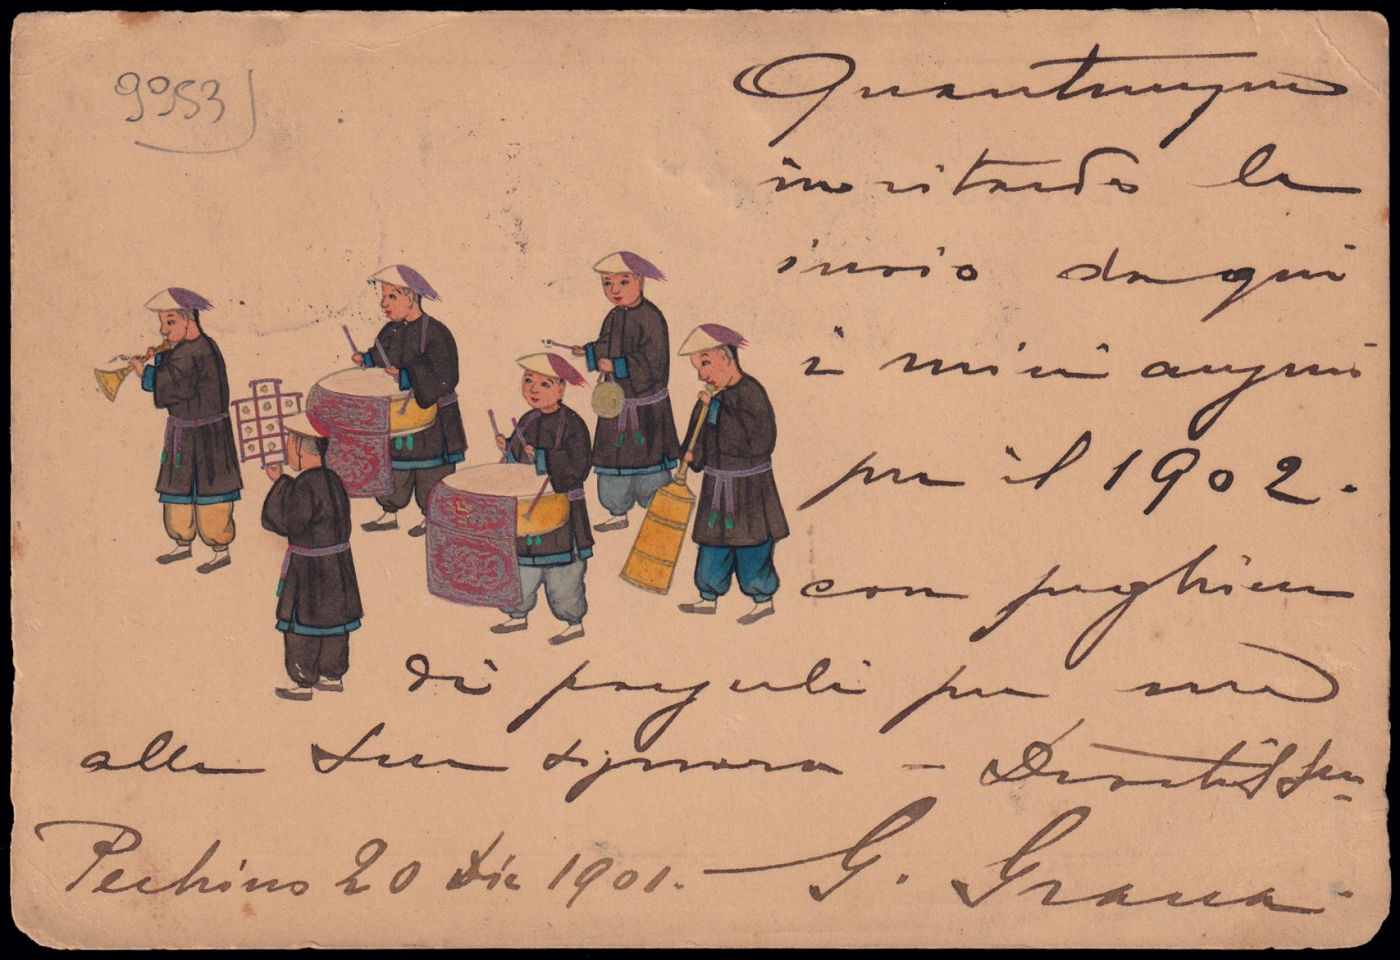 9953
Quantunque
in ritardo le
invio da qui
i miei auguri
per il 1902.
con preghiera
di porgerli per me
alla Sua signora - Devotiss
Pechino 20 Dic 1901. G. Grana